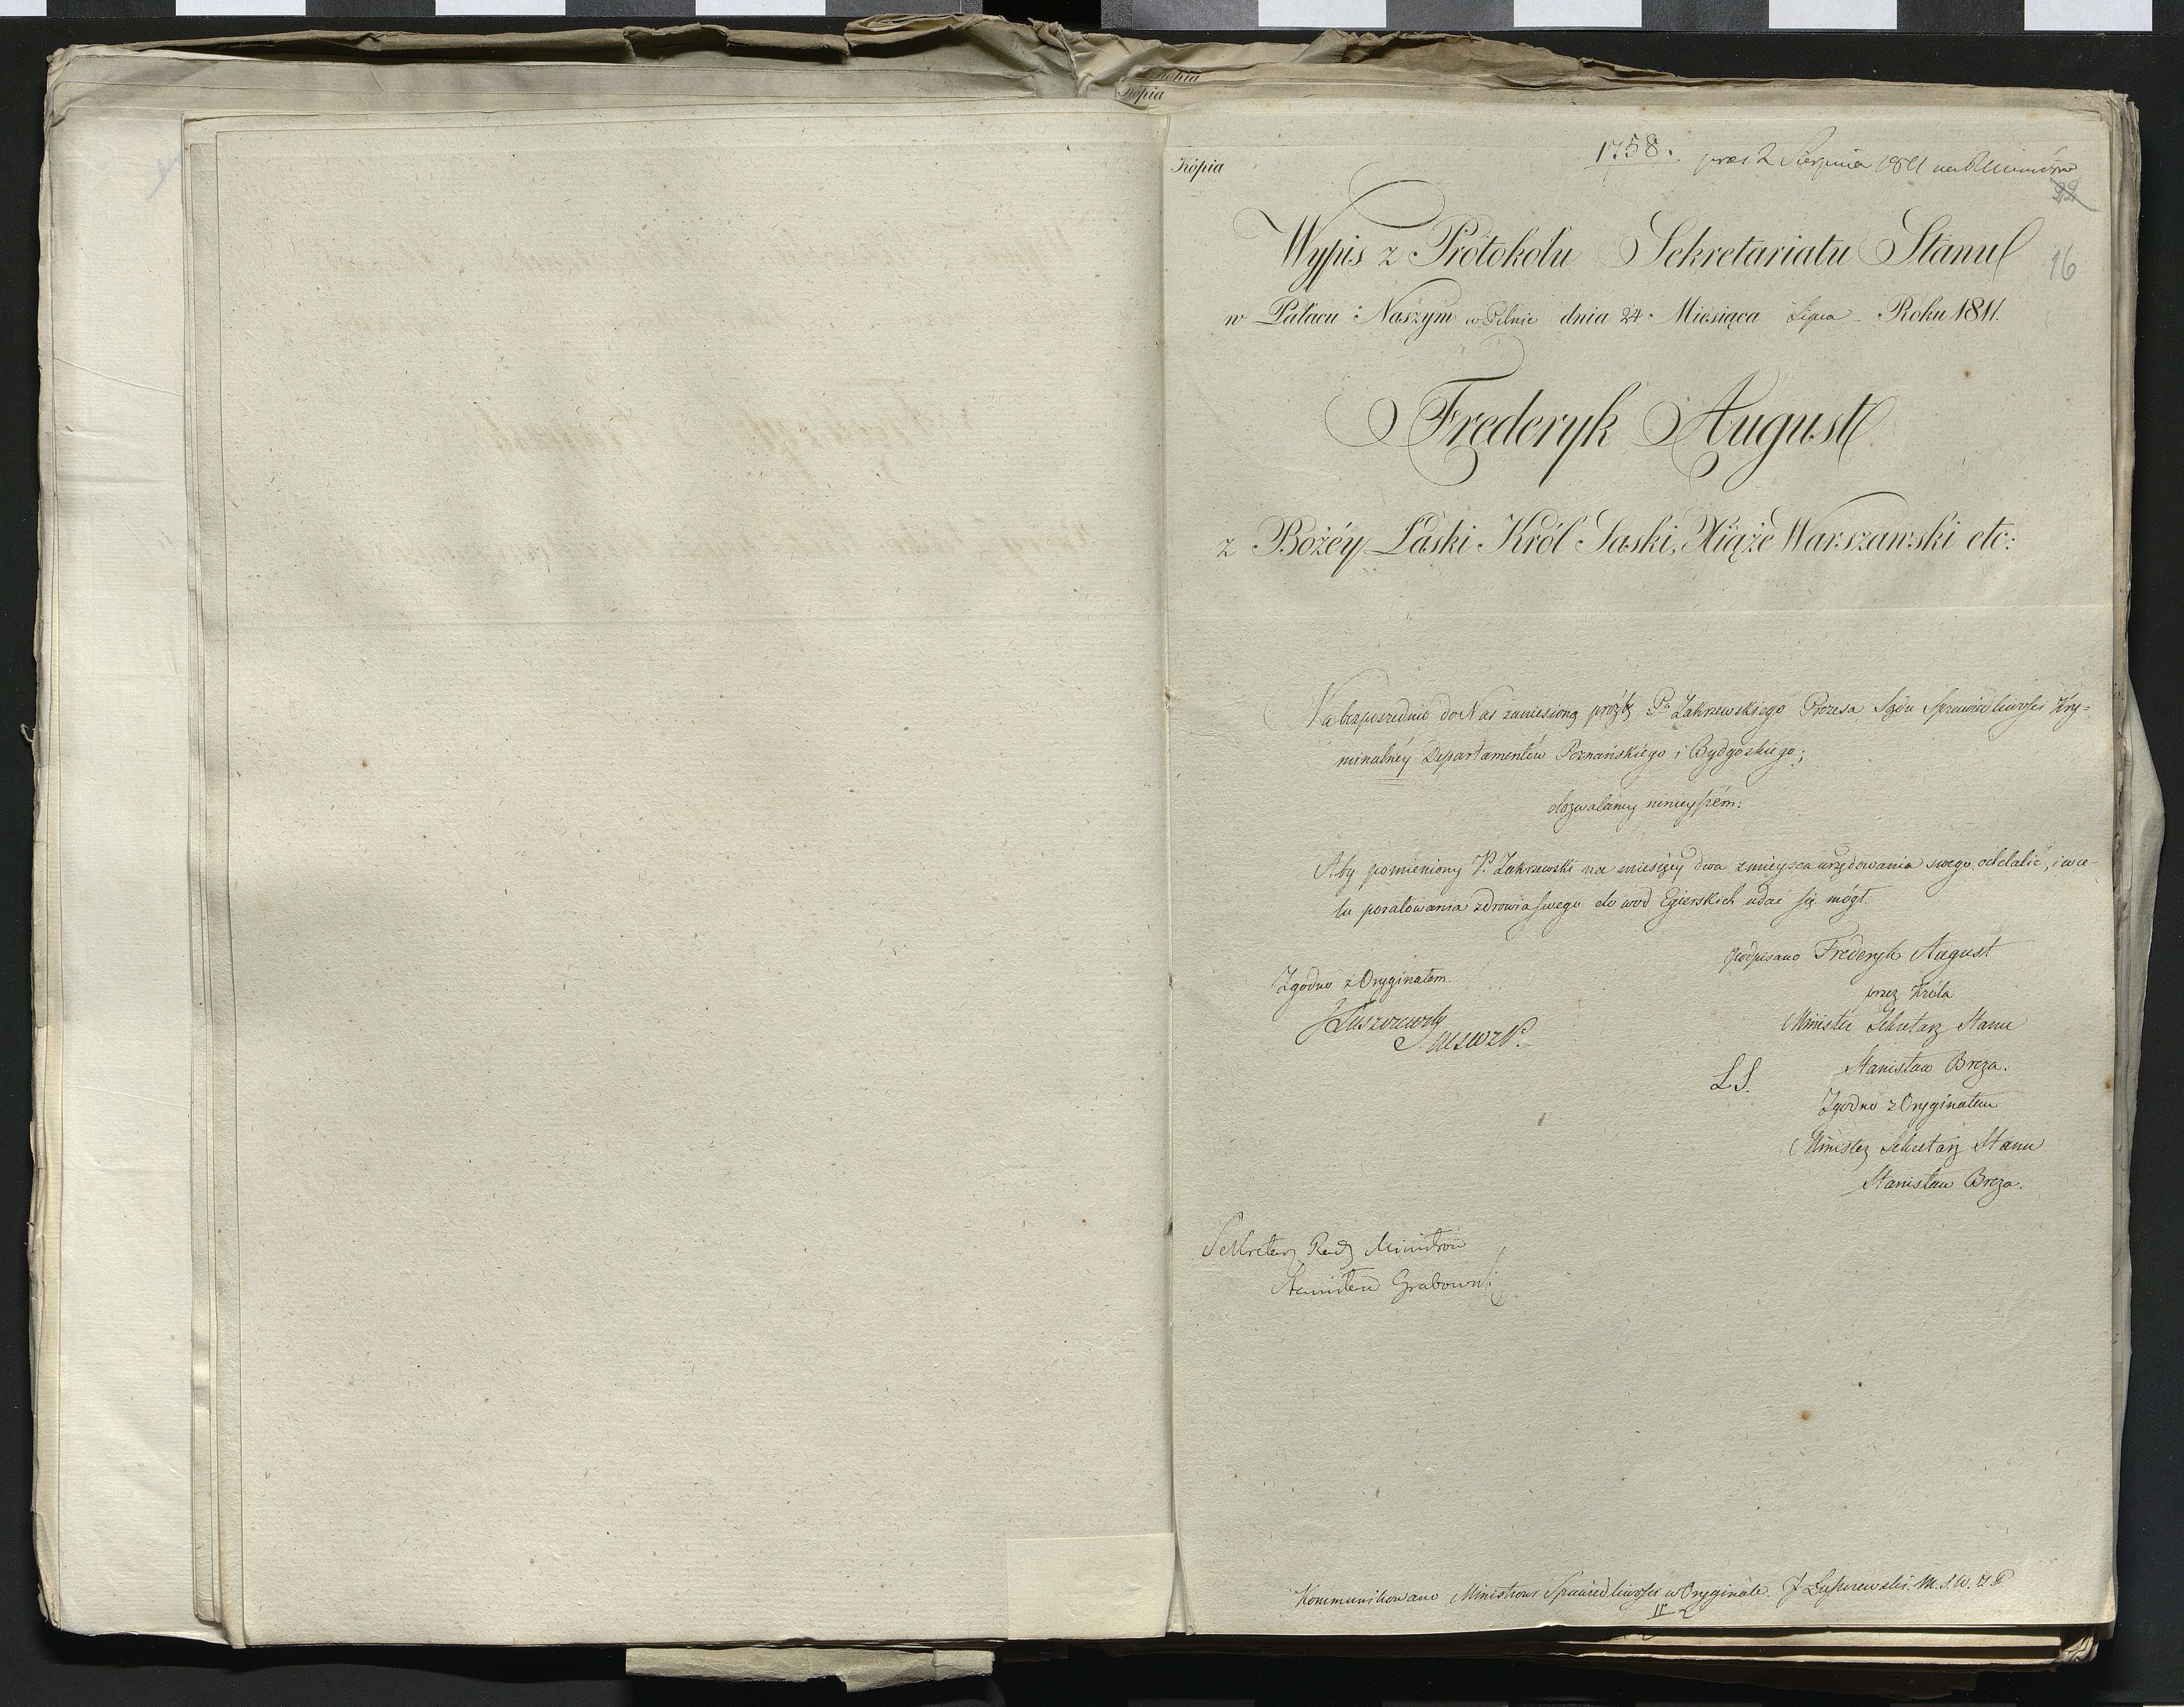 Kopia
Kopia
Kopia
1758. præs 2 Sierpnia 1811
22
16
Wypis z Protokółu Sekretariatu Stanu
w Pałacu Naszym w Pilnic dnia 24 Miesiąca Lipca Roku 1811.
Frederyk August
z Bożéy Łaski Król Saski, Xiąże Warszawski etc:
Na bezpośrednio do Nas zaniesioną proźbę Pa Zakrzewskiego Prezesa Sądu Sprawiedliwości Kry=
minalnéy Departamentów Poznańskiego i Bydgoskiego;
dozwalamy ninieyszém:
Aby pomieniony P. Zakrzewski na miesięcy dwa z mieysca urzędowania swego oddalić, i w ce-
lu poratowania zdrowia swego do wod Egierskich udać się mógł.
podpisano Frederyk August
przez Króla
Minister Sekretarz Stanu
Stanisław Breza.
L.S.
Zgodno z Oryginałem
Minister Sekretarz Stanu
Stanisław Breza.
Zgodno z Oryginałem.
J Łuszczewsky
Sekretarz Rady Ministrów
Stanisław Grabowski
Kommunikowano Ministrowi Sprawiedliwości w Oryginale. J Łuszczewski. M. S. W. i P